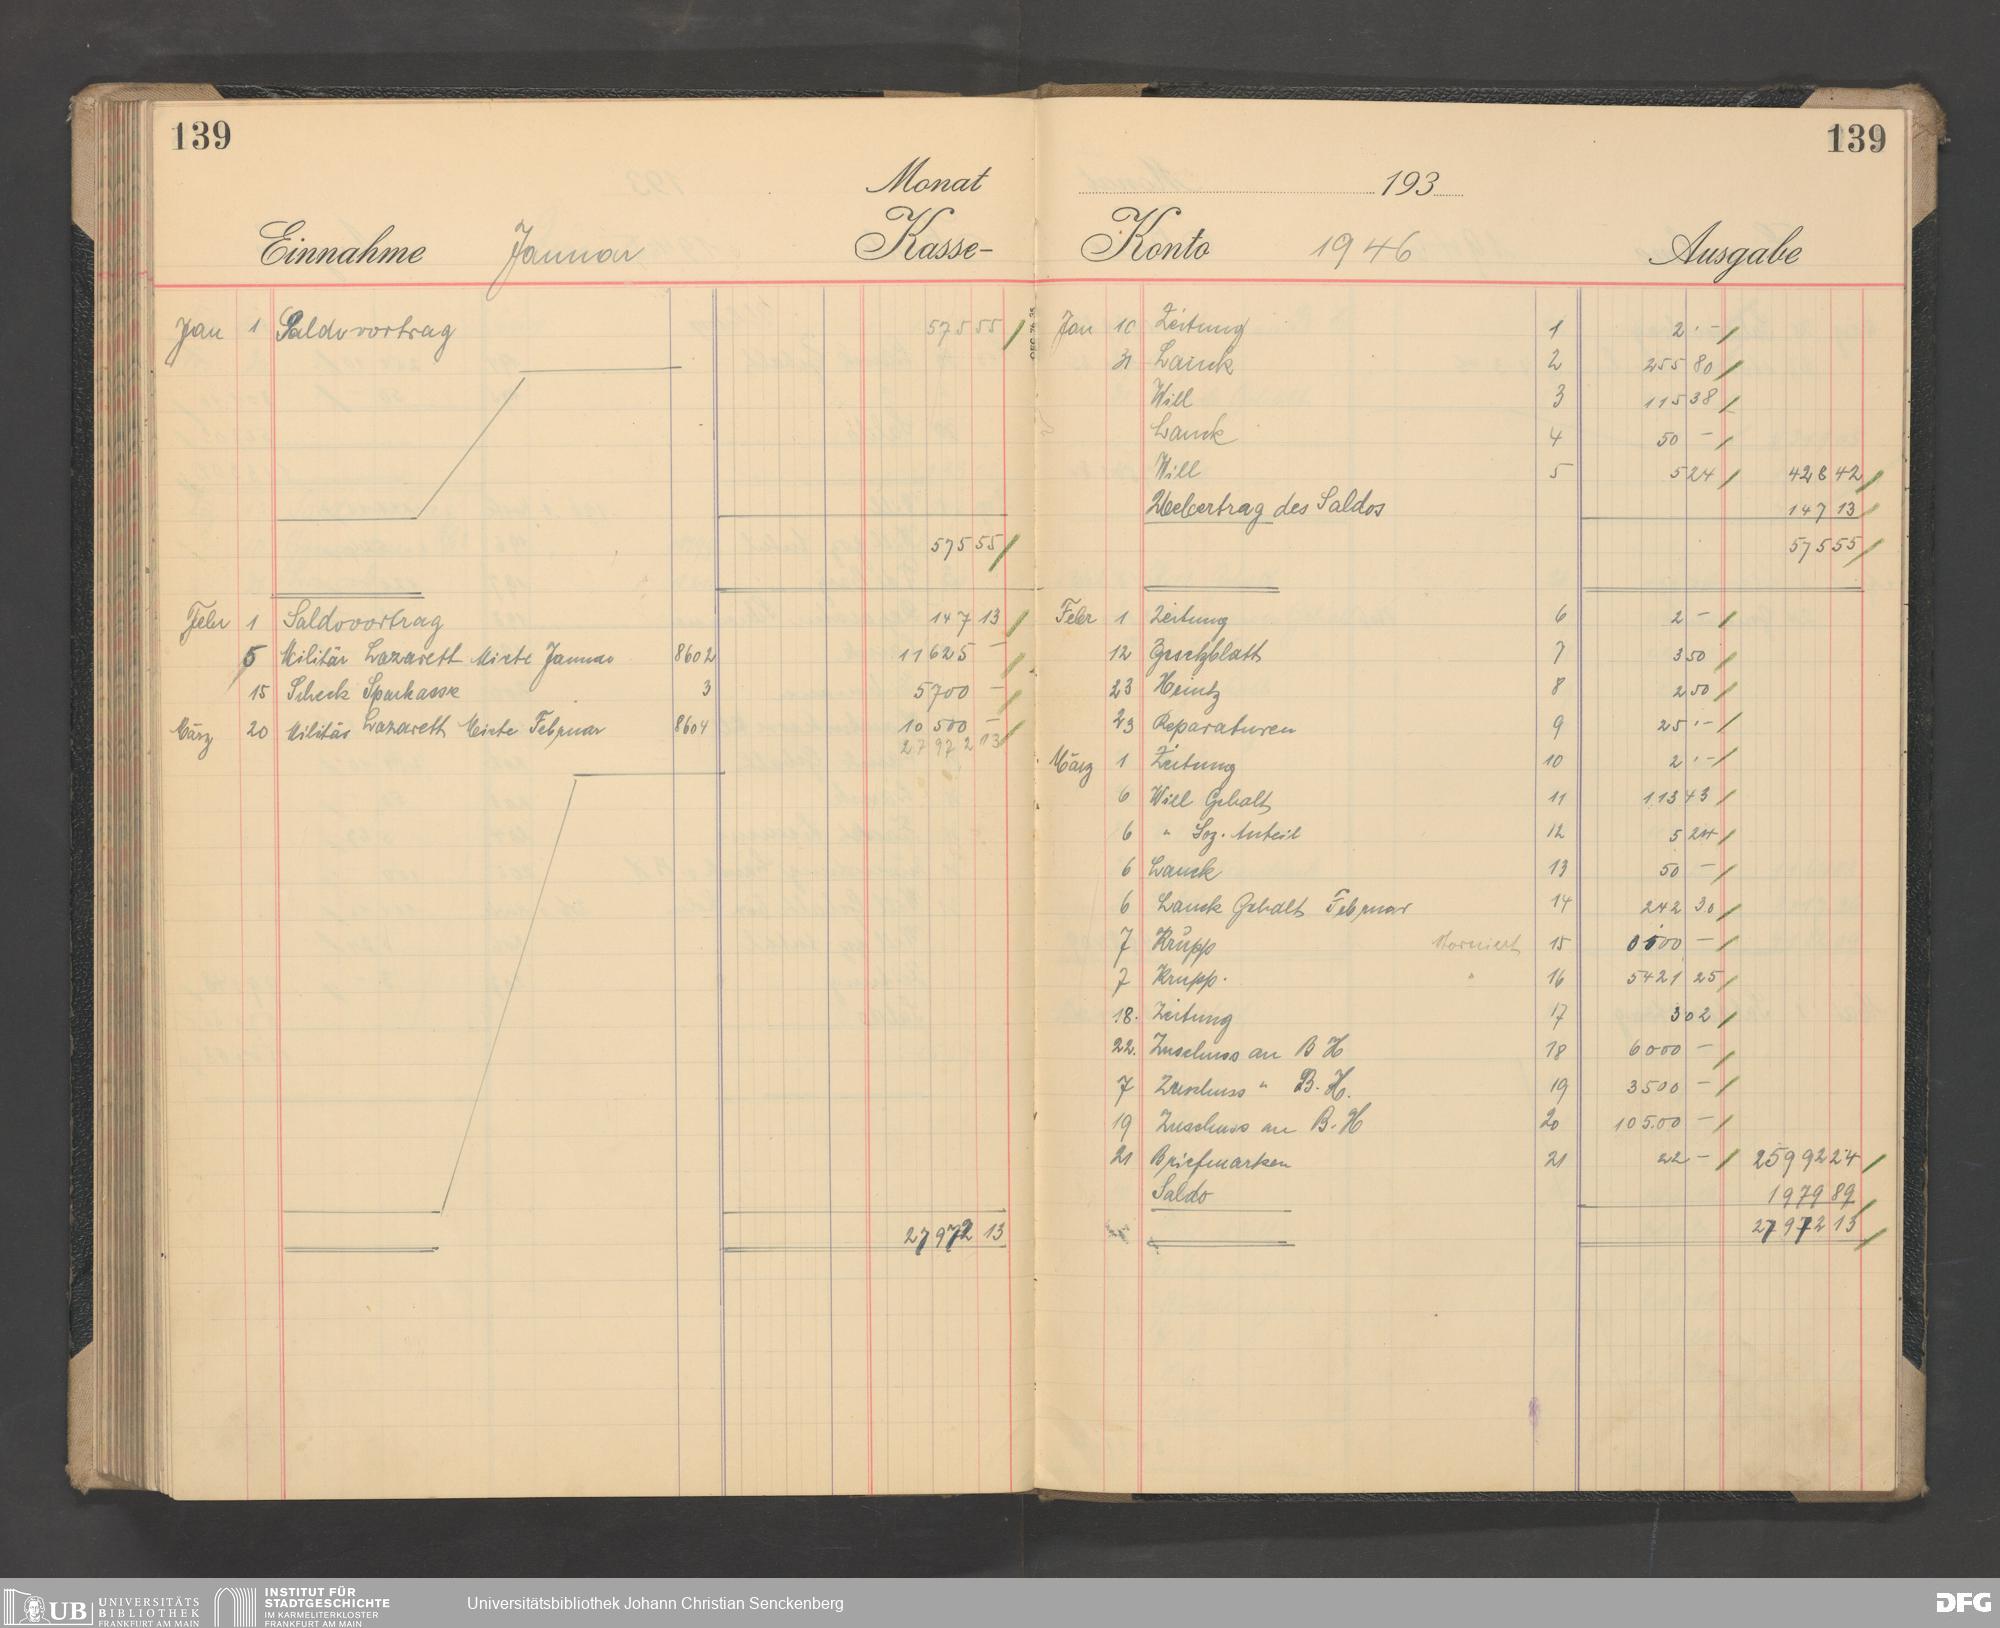 139
Monat
Einnahme Januar Kasse-
Jan 1 Saldovortrag 575 55
575 55
Febr 1 Saldovortrag 147 13
5 Militär Lazarett Miete Januar 8602 11625 –
15 Scheck Sparkasse 3 5700 –
März 20 Militär Lazarett Miete Februar 8604 10500 –
27972 13
27972 13
139
193
Konto 1946 Ausgabe
Jan 10 Zeitung 1 2.–
31 Lauck 2 255 80
Will 3 115 38
Lauck 4 50 –
Will 5 5 24 428 42
Uebertrag des Saldos 147 13
575 55
Febr 1 Zeitung 6 2 –
12 Gesetzblatt 7 3 50
23 Heintz 8 2 50
23 Reparaturen 9 25.–
März 1 Zeitung 10 2.–
6 Will Gehalt 11 113 43
6 " Soz. Anteil 12 5 24
6 Lauck 13 50 –
6 Lauck Gehalt Februar 14 242 30
7 Krupp storniert 15 –
7 Krupp. " 16 5421 25
18. Zeitung 17 3 02
22. Zuschuss an B H 18 6000 –
7 Zuschuss " B. H. 19 3500 –
19 Zuschuss an B. H 20 10500 –
21 Briefmarken 21 22 – 25992 24
Saldo 1979 89
27972 13
UB UNIVERSITÄTS
BIBLIOTHEK
FRANKFURT AM MAIN
INSTITUT FÜR
STADTGESCHICHTE
IM KARMELITERKLOSTER
FRANKFURT AM MAIN
Universitätsbibliothek Johann Christian Senckenberg
DFG